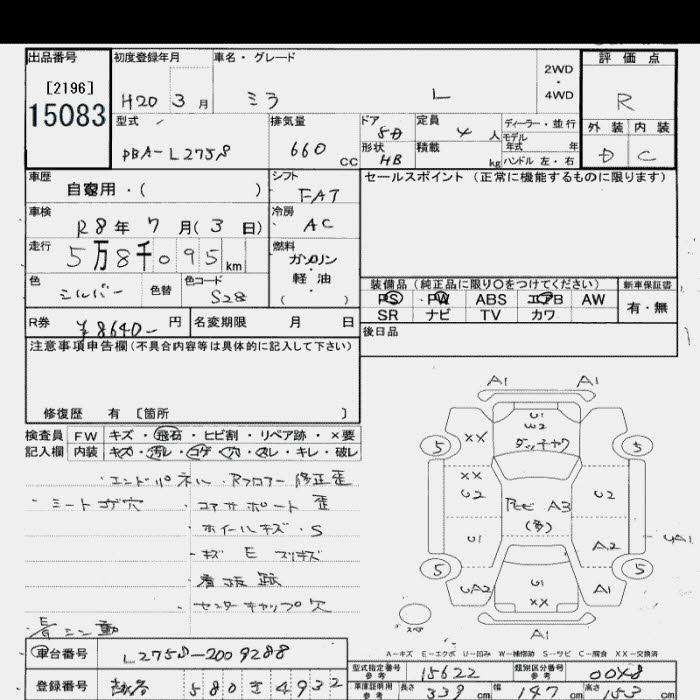 出品番号 初度登録年月 車名・グレード 2WD・4WD 評価点
[2196]
15083
H20 3月 ミラ L R
型式 排気量 ドア 定員 ディーラー・並行
DBA-L275S 660 CC 5D 4人 モデル年式 年
外装 内装
形状 HB 積載 kg ハンドル 左・右
D C
車歴 自家用・( ) シフト FAT セールスポイント (正常に機能するものに限ります)
車検 R8年 7月(3日) 冷房 AC
走行 5万8千095km 燃料 ガソリン・軽油・( )
色 シルバー 色替 色コード S28
装備品(純正品に限り○をつけてください) 新車保証書
PS PW ABS エアB AW 有・無
SR ナビ TV カワ
R券 ¥8640- 円 名変期限 月 日
後日品
注意事項申告欄(不具合内容等は具体的に記入して下さい)
修復歴 有 [箇所 ]
検査員 FW キズ・飛石・ヒビ割・リペア跡・×要
記入欄 内装 キズ・汚レ・コゲ・穴・スレ・キレ・破レ
・エンドパネル・Rフロアー修正歪
・シートコゲ穴 ・コアサポート歪
・ホイールキズ・S
・キズ E スリキズ
・センターキャップ欠
A1 A1
U1
W2
XX
5 5
XX
U2 U2
A3
(多)
U1 A2 UA1
5 5
UA2 U1 A1
XX
A1
スペア
A-キズ E-エクボ U-凹み W-補修跡 S-サビ C-腐食 XX-交換済
車台番号 L275S-2009288
型式指定番号 参考 15622 類別区分番号 参考 0048
登録番号 580 き 4932
車庫証明用 参考 長さ 339 幅 147 高さ 153